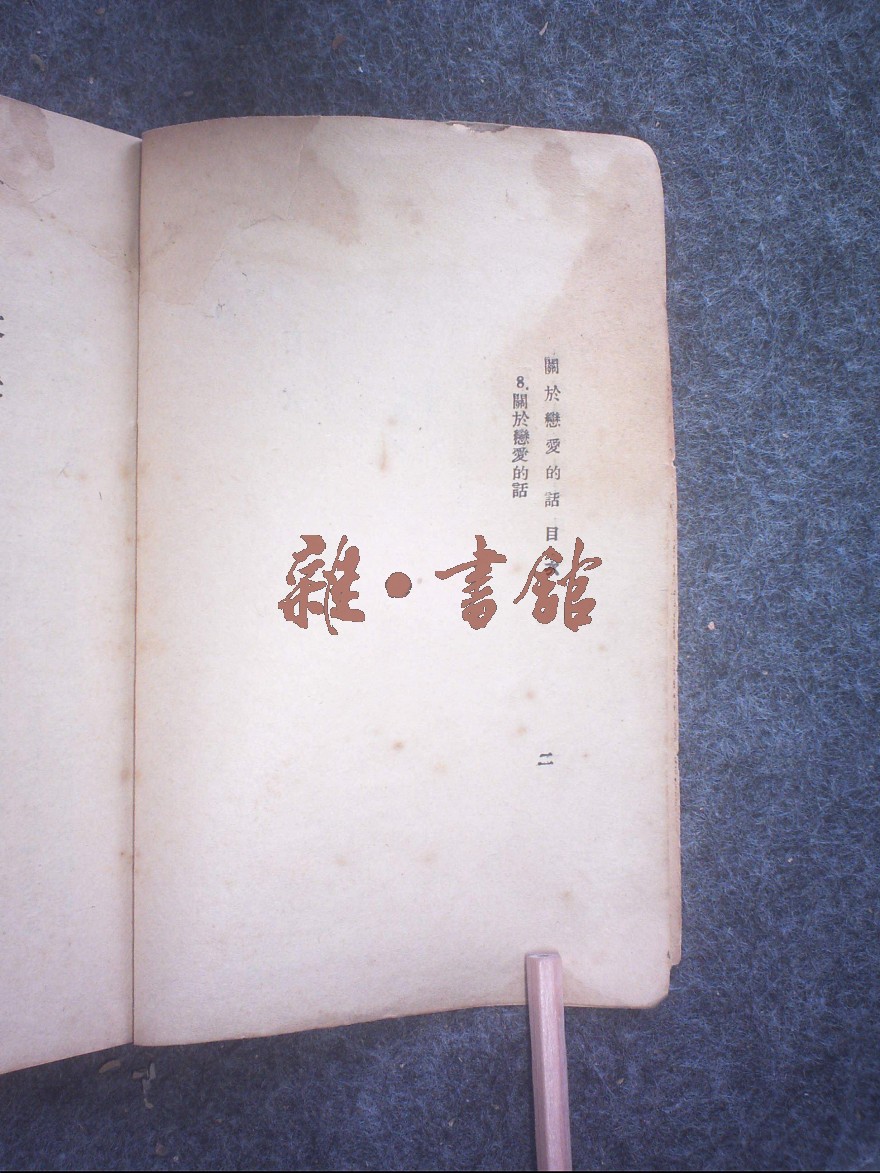 關於戀愛的話 目
二
8.關於戀愛的話
雜·書館